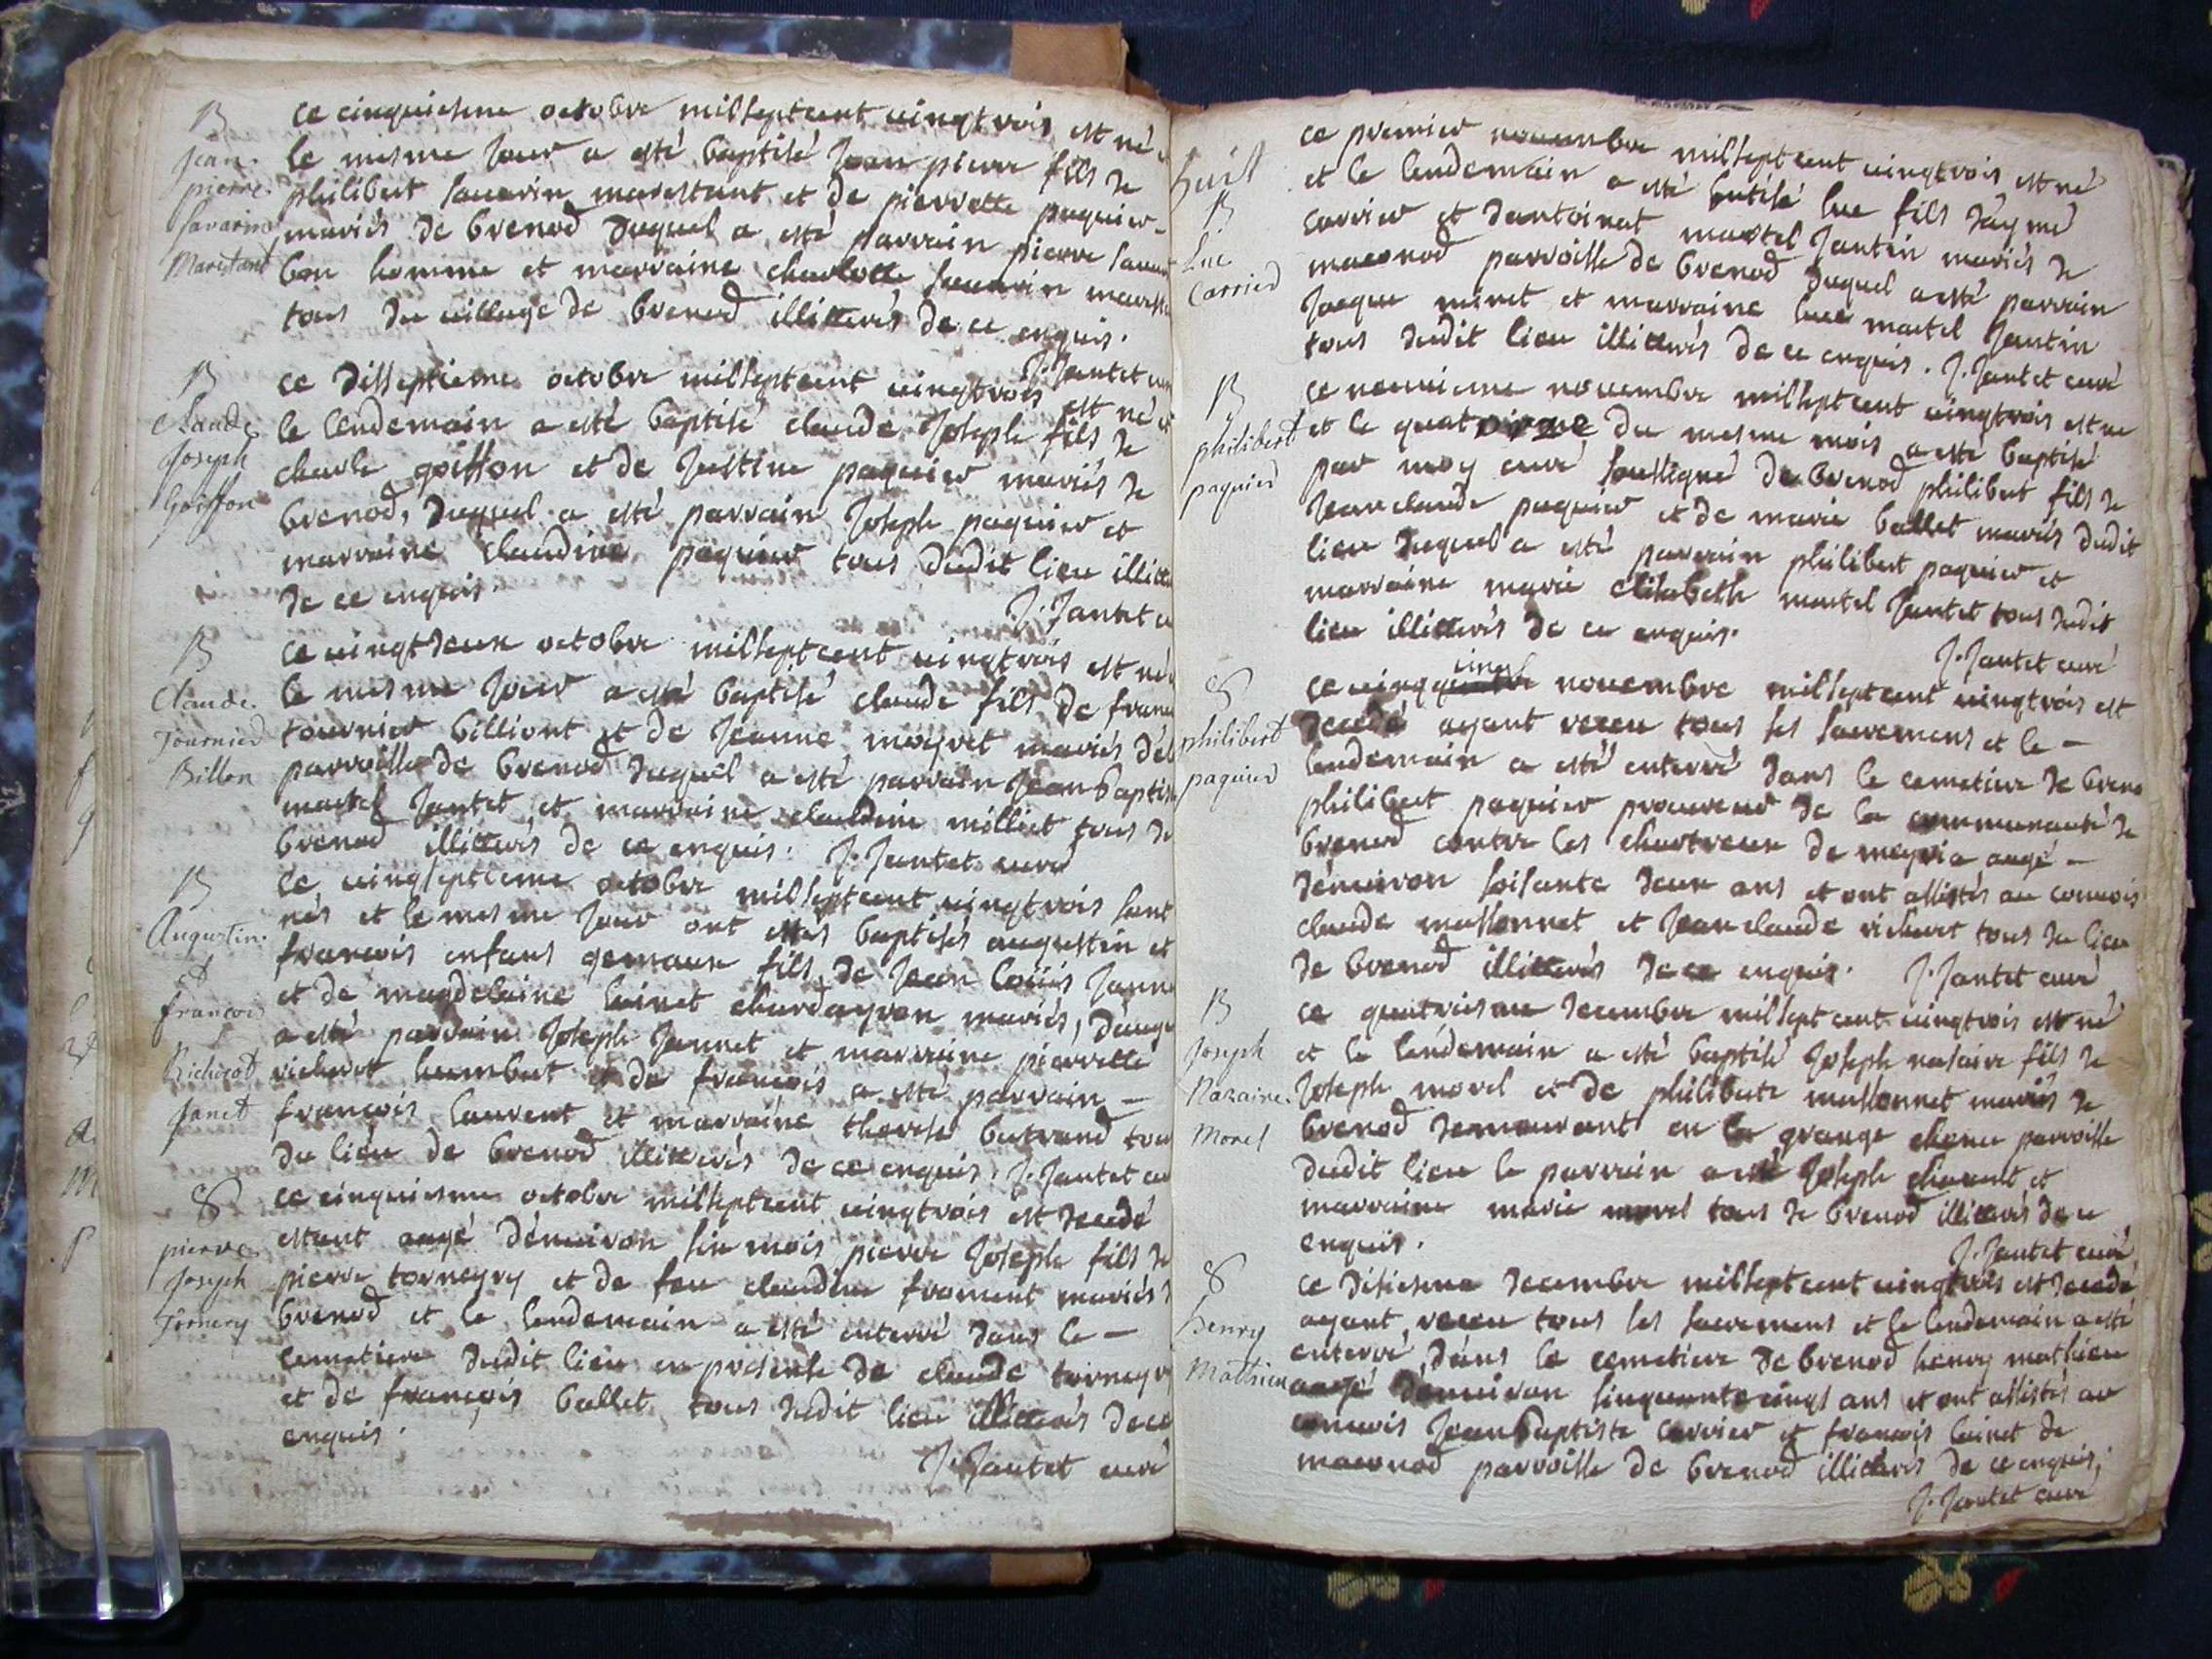 B
Jean
pierre
savarin
Marestant
ce cinquiesme octobre milseptcent vingtrois est né
le mesme jour a esté baptisé jean pierre fils de
philibert savarin marestant et de pierrette paquier
mariés de brenod duquel a esté parrain pierre
bon homme et marraine charlotte savarin
tous du village de brenod illitterés de ce enquis.
J. Jantet
B
Claude
Joseph
Goiffon
ce disseptieme octobre milseptcent vingtrois est né et
le lendemain a esté baptisé claude Joseph fils de
charle goiffon et de Justine paquier mariés de
brenod, duquel a esté parrain Joseph paquier et
marraine claudine paquier tous dudit lieu
de ce enquis.
J. Jantet
B
Claude
Tournier
Billon
ce vingtdeux octobre milseptcent vingtrois est né
le mesme jour a esté baptisé claude fils de
tournier billiont et de Jeanne moyret mariés
parroisse de brenod duquel a esté parrain Jean baptiste
martel Jantet et marraine claudine milliet tous de
brenod illitterés de ce enquis. J. Jantet curé
B
Augustin
et
francois
Richerot
Janet
ce vingseptieme octobre milseptcent vingtrois sont
nés et le mesme jour ont estés baptisés augustin et
francois enfans gemaux fils de Jean loüis
et de magdelaine luinet chardeyron mariés,
a esté parrain Joseph Jannet et marraine pierrette
richerot humbert et de francois a esté parrain –
francois laurent et marraine therese bertrand
du lieu de brenod illitterés de ce enquis. J. Jantet
S
pierre
Joseph
Tornery
ce cinquiesme octobre milseptcent vingtrois est decedé
estant aagé d'enuiron six mois pierre Joseph fils de
pierre torneyry et de feu claudine froment mariés
brenod et le lendemain a esté enterré dans le –
cemetiere dudit lieu en presense de claude
et de françois ballet tous dudit lieu illitterés de ce
enquis.
J. Jantet curé
huit
B
Luc
Carrier
ce premier nouembre milseptcent vingtrois est né
et le lendemain a esté batisé luc fils d'aymé
carrier et d'antoinet martel Jantin mariés de
maconod parroisse de brenod duquel a esté parrain
Jacque minet et marraine luce martel Jantin
tous dudit lieu illitterés de ce enquis. J. Jantet curé
B
philibert
paquier
ce neuuieme nouembre milseptcent vingtrois est ne
et le quatorzme du mesme mois a esté baptisé
par moy curé soussigné de brenod philibert fils de
Jean claude paquier et de marie ballet mariés dudit
lieu duquel a esté parrain philibert paquier et
marraine marie elisabeth martel Jantet tous dudit
lieu illitterés de ce enquis.
J. Jantet curé
S
philibert
paquier
nouembre milseptcent vingtrois est
decedé ayant receu tous les sacremens et le –
lendemain a esté enterré dans le cemetiere de
philibert paquier procureur de la communauté de
brenod contre les chartreux de meyria aagé –
d'enuiron soisante deux ans et ont assistés au conuois
claude massonnet et Jean claude richerot tous du lieu
de brenod illitterés de ce enquis. J. Jantet curé
B
Joseph
Nazaire
Morel
ce quatriesme decembre milseptcent vingtrois est né
et le lendemain a esté baptisé Joseph nasaire fils de
Joseph morel et de philiberte massonnet mariés de
brenod demeurant en la grange chenu parroisse
dudit lieu le parrain a esté Joseph et
marraine marie morel tous de brenod illitterés de ce
enquis.
J. Jantet curé
S
henry
Mathieu
ce disiesme decembre milseptcent vingtrois est decedé
ayant receu tous les sacremens et le lendemain a esté
enterré dans le cemetiere de brenod henry mathieu
aagé d'enuiron sinquante cinqs ans et ont assistés au
conuois Jean baptiste carrier et francois luinet de
maconod parroisse de brenod illiterés de ce enquis.
J. Jantet curé